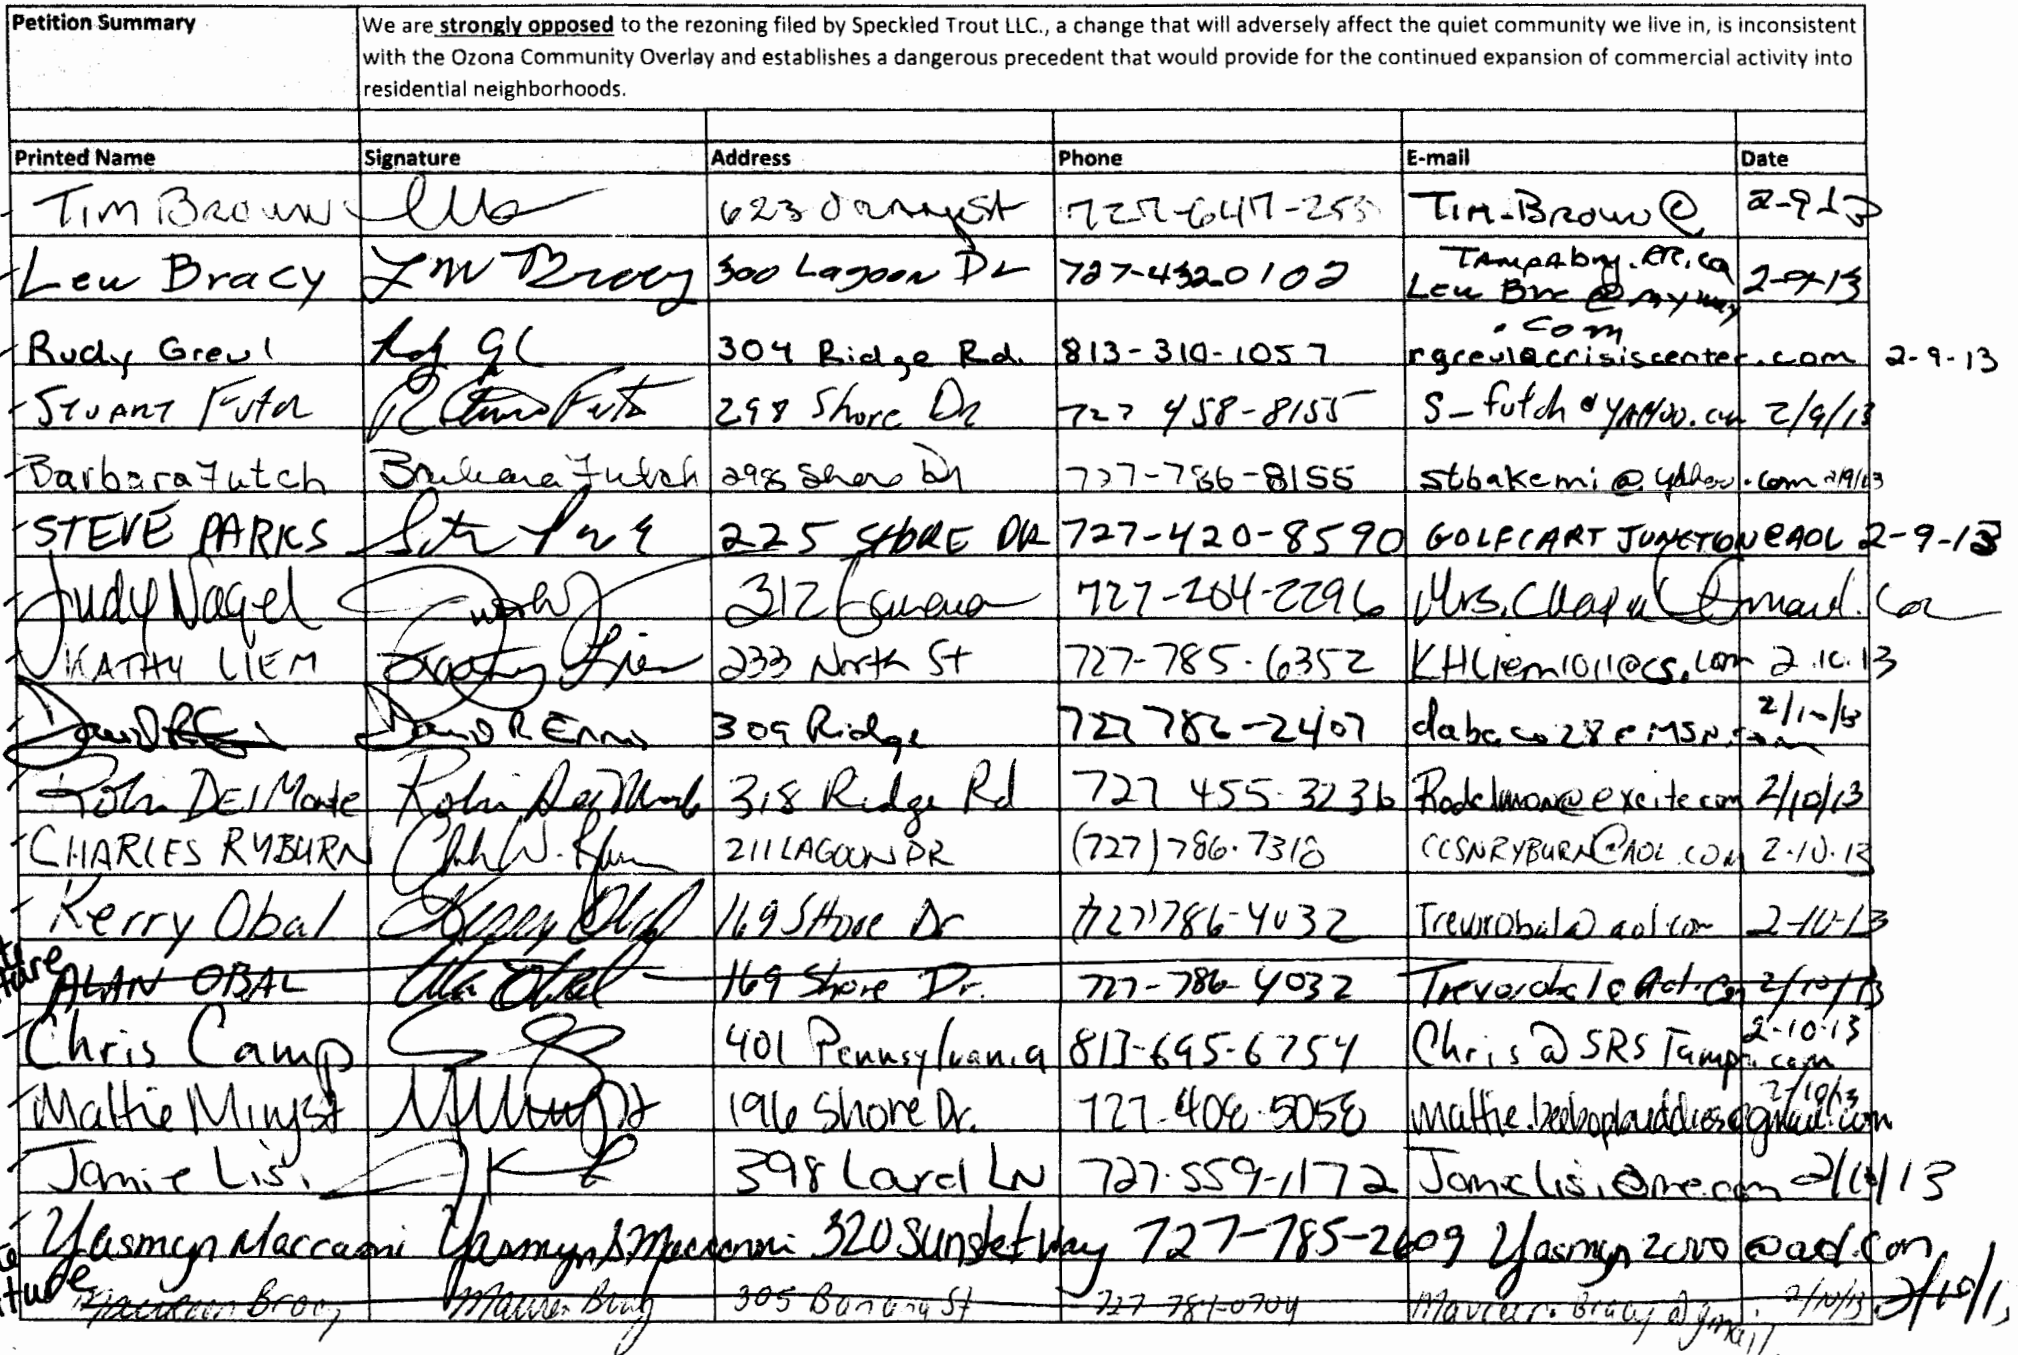 Petition Summary
We are strongly opposed to the rezoning filed by Speckled Trout LLC., a change that will adversely affect the quiet community we live in, is inconsistent
with the Ozona Community Overlay and establishes a dangerous precedent that would provide for the continued expansion of commercial activity into
residential neighborhoods.
Printed Name Signature Address Phone E-mail Date
TIM BROWN 623 Orange St 727-647-253 TIM-BROWN@ 2-9-13
TAMPABAY.RR.CO
Lew Bracy LM Bracy 300 Lagoon Dr 727-432-0102 Lew Brc @myway 2-9-13
.com
Rudy Greul 304 Ridge Rd. 813-310-1057 rgreul@crisiscenter.com 2-9-13
STUART FUTCH 298 Shore Dr 727 458-8155 S_futch@YAHOO.com 2/9/13
Barbara Futch Barbara Futch 298 Shore Dr 727-786-8155 stbakemi@yahoo.com 2/9/13
STEVE PARKS 225 SHORE DR 727-420-8590 GOLFCART JUNCTION@AOL 2-9-13
Judy Nagel 312 727-204-2296 Mrs.
KATHY LIEM 233 North St 727-785-6352 KHLiem1011@cs.com 2.10.13
David R Ennis 309 Ridge 727 786-2407 2/10/13
Robin DelMonte Robin DelMonte 318 Ridge Rd 727 455-3236 Rodelmon@excite.com 2/10/13
CHARLES RYBURN 211 LAGOON DR (727)786-7318 CCSNRYBURN@AOL.COM 2-10-13
Kerry Obal Kerry Obal 169 Shore Dr (727)786-4032 Trevorobal@aol.com 2-10-13
ALAN OBAL Obal 169 Shore Dr. 727-786-4032 Trevorobal@Aol.Com 2/10/13
Chris Camp 401 Pennsylvania 813-695-6754 Chris@SRSTampa.com 2-10-13
Mattie Minyst 196 Shore Dr. 727-408-5058 mattie.beeboplauddies@gmail.com 2/10/13
Jamie Lisi 398 Laurel LN 727-559-1172 Jamielisi@me.com 2/10/13
Yasmyn Maccanni Yasmyn S. Maccanni 320 Sunset Way 727-785-2609 Yasmyn2000@aol.com 2/10/13
Maureen Bracy Maureen Bracy 305 Banana St 727-781-0704 Maureen.Bracy@gmail 2/10/13